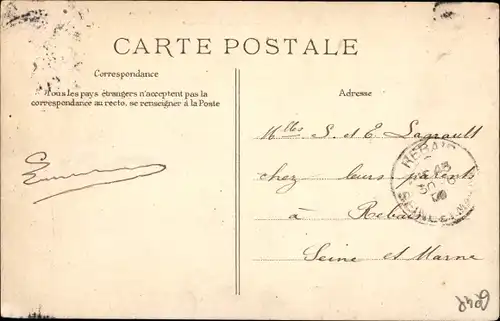 CARTE POSTALE
Correspondance
Tous les pays étrangers n'acceptent pas la
correspondance au recto, se renseigner à la Poste
Adresse
Mlles S. et E. Lagrault
chez leurs parents
à Rebais
Seine et Marne
REBAIS
SEINE-ET-MARNE